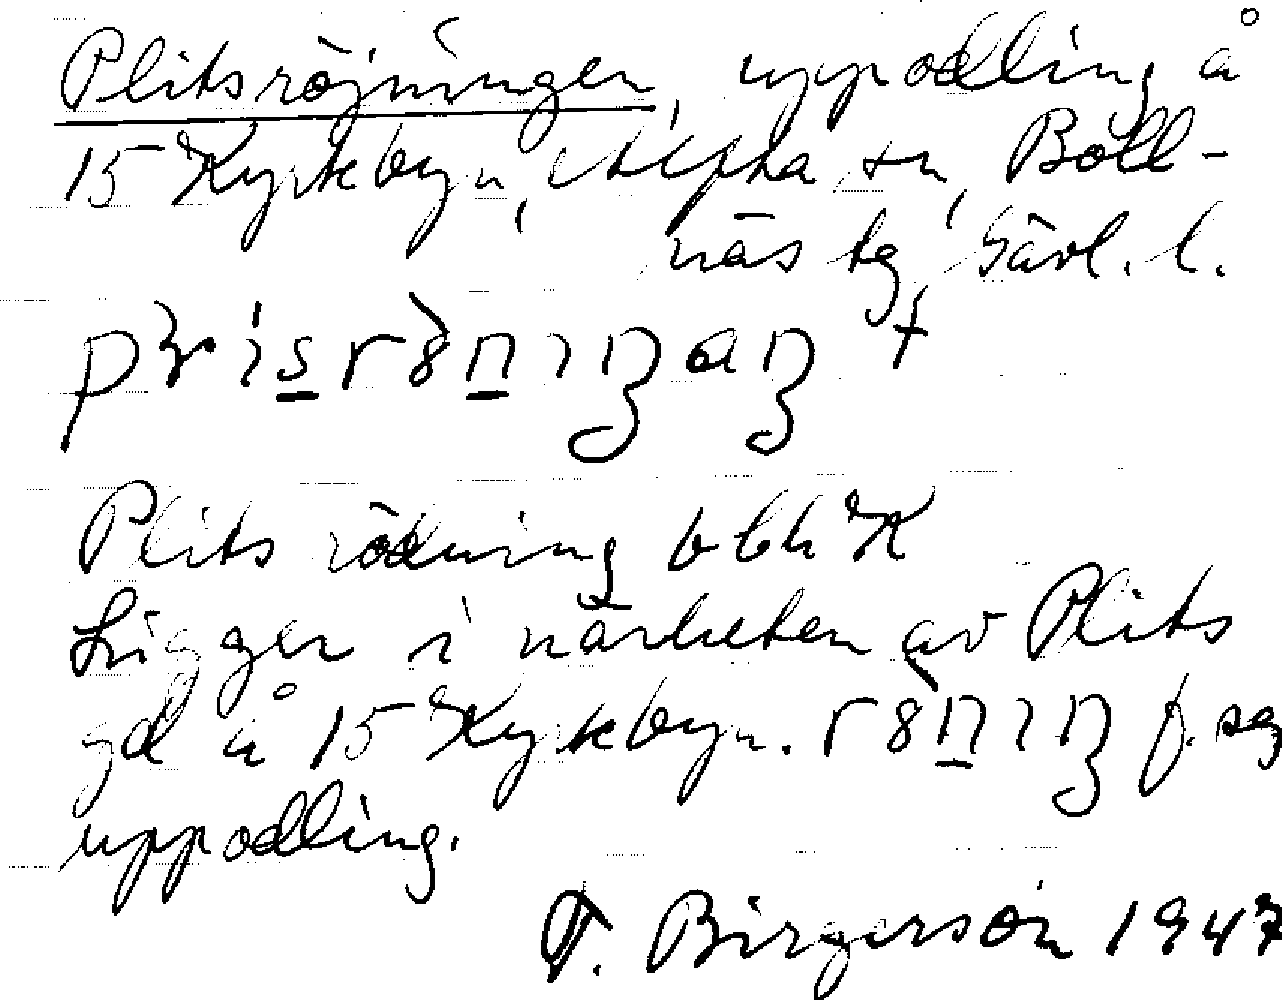 Plitsröjningen, uppodling å
15 Kyrkbyn, Alfta sn, Boll-
näs tg, Gävl. l.
Plitsrödning bbh K
Ligger i närheten av Plits
gd å 15 Kyrkbyn. f. sg
uppodling.
T. Birgersön 1947